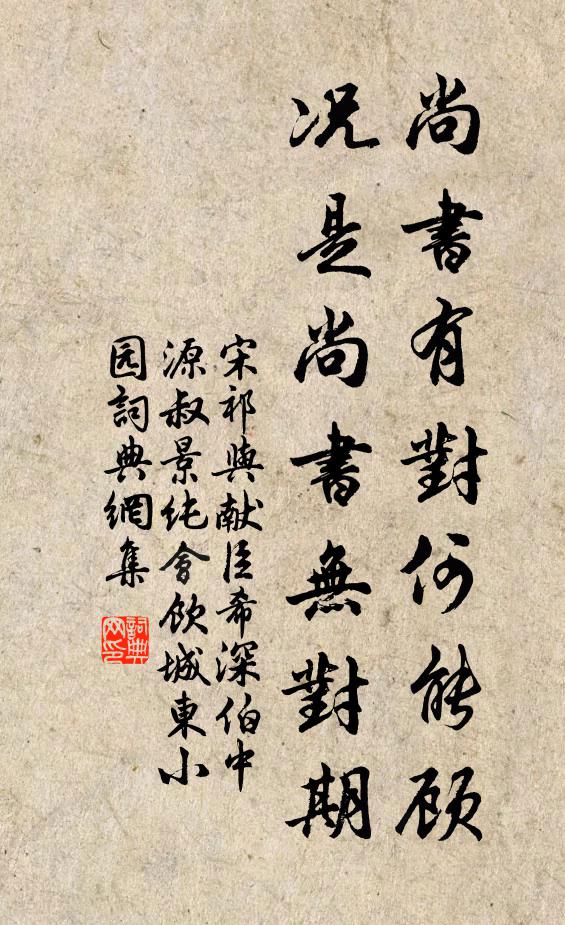 尚書有對何能顾
况是尚書無對期
宋祁與献臣希深伯中
源叔景纯會飲城東小
园詞典網集
詞典网印